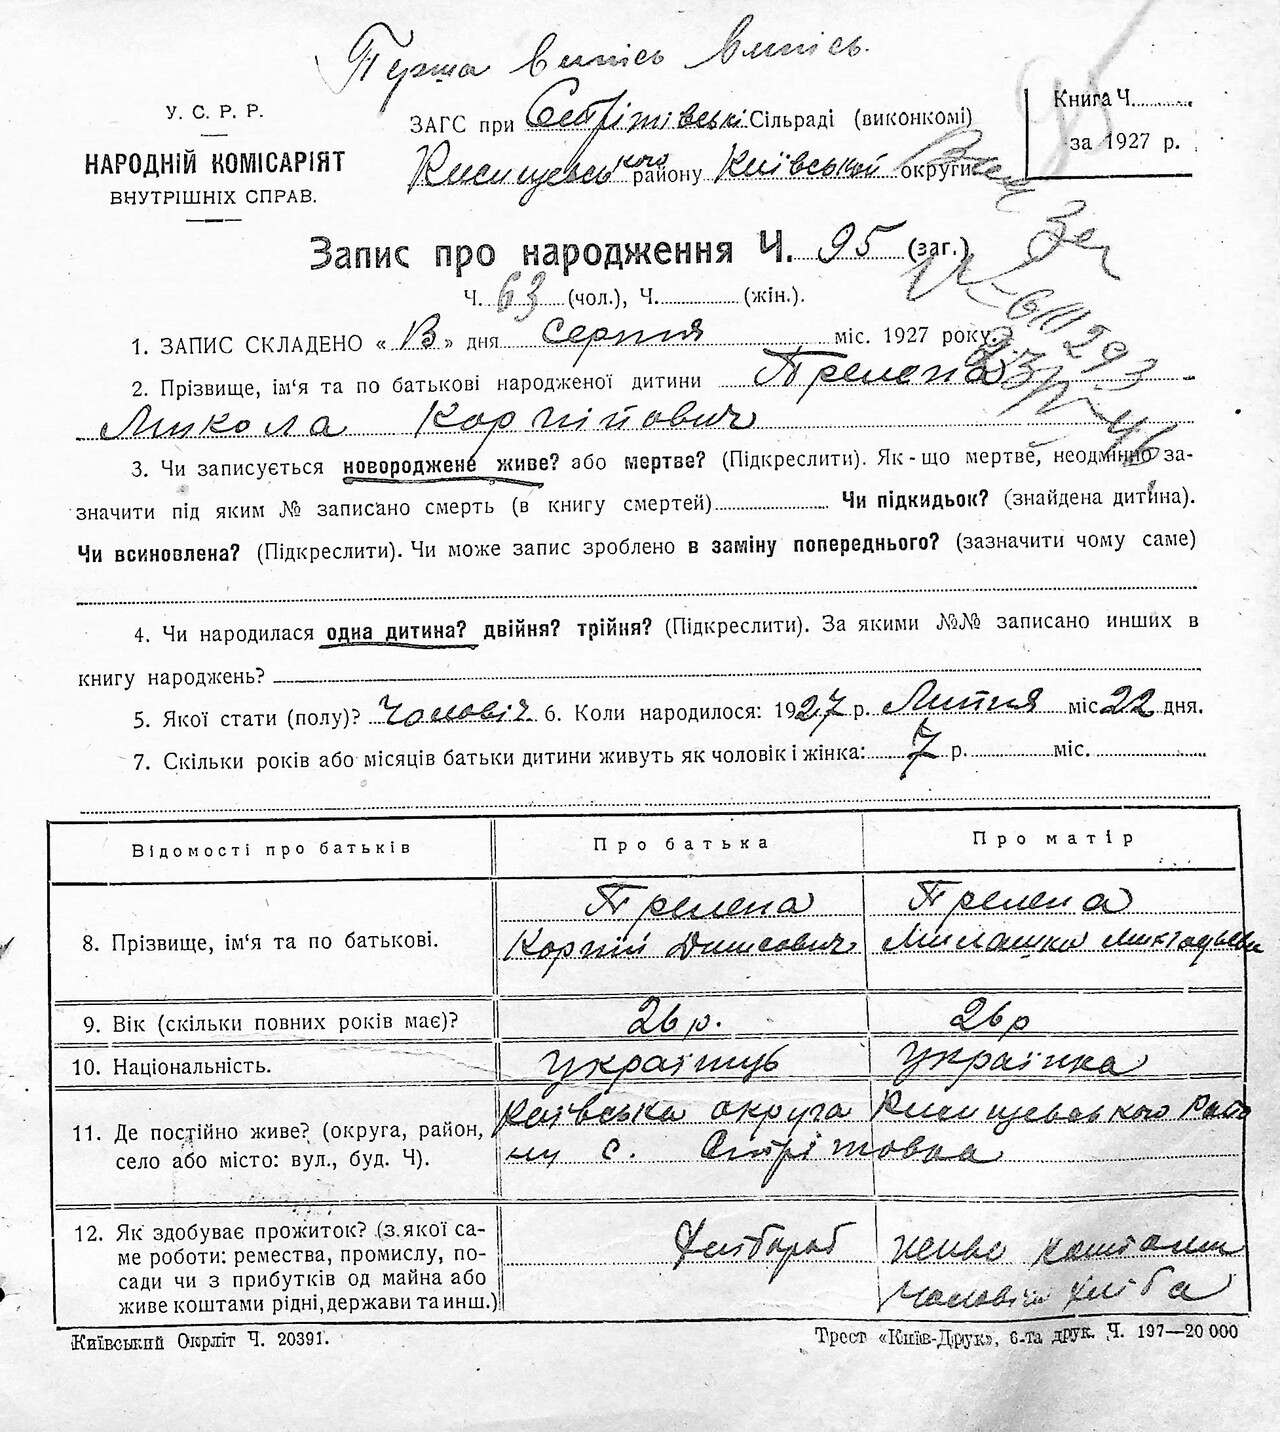 Перша випись Випись.
У. С. Р. Р.
НАРОДНІЙ КОМІСАРІЯТ
ВНУТРІШНІХ СПРАВ.
ЗАГС при Стрітівські Сільраді (виконкомі)
району Київської округи
Книга Ч.
за 1927 р.
Запис про народження Ч. 95 (заг.)
Ч. 63 (чол.), Ч. (жін.).
1. ЗАПИС СКЛАДЕНО « » дня серпня міс. 1927 року.
2. Прізвище, ім'я та по батькові народженої дитини Прелепа
Микола Корнійович
3. Чи записується новороджене живе? або мертве? (Підкреслити). Як-що мертве, неодмінно за-
значити під яким № записано смерть (в книгу смертей) Чи підкидьок? (знайдена дитина).
Чи всиновлена? (Підкреслити). Чи може запис зроблено в заміну попереднього? (зазначити чому саме)
4. Чи народилася одна дитина? двійня? трійня? (Підкреслити). За якими №№ записано инших в
книгу народжень?
5. Якої стати (полу)? Чоловіч. 6. Коли народилося: 1927 р. Липня міс 22 дня.
7. Скільки років або місяців батьки дитини живуть як чоловік і жінка: 7 р. міс.
Відомості про батьків Про батька Про матір
8. Прізвище, ім'я та по батькові.
Прелепа
Корній Денисович
Прелепа
9. Вік (скільки повних років має)? 26 р. 26 р
10. Національність. Українць Українка
11. Де постійно живе? (округа, район,
село або місто: вул., буд. Ч).
Київська округа
с. Стрітовка
12. Як здобуває прожиток? (з якої са-
ме роботи: ремества, промислу, по-
сади чи з прибутків од майна або
живе коштами рідні, держави та инш.)
Хлібороб
живе коштами
Київський Окрліт Ч. 20391.
Трест «Київ-Друк», 6-та друк. Ч. 197—20 000